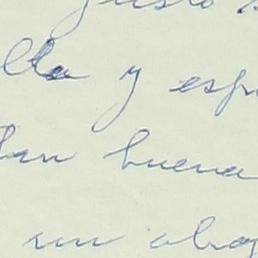 gusto
lla y esp
tan buena
un abra